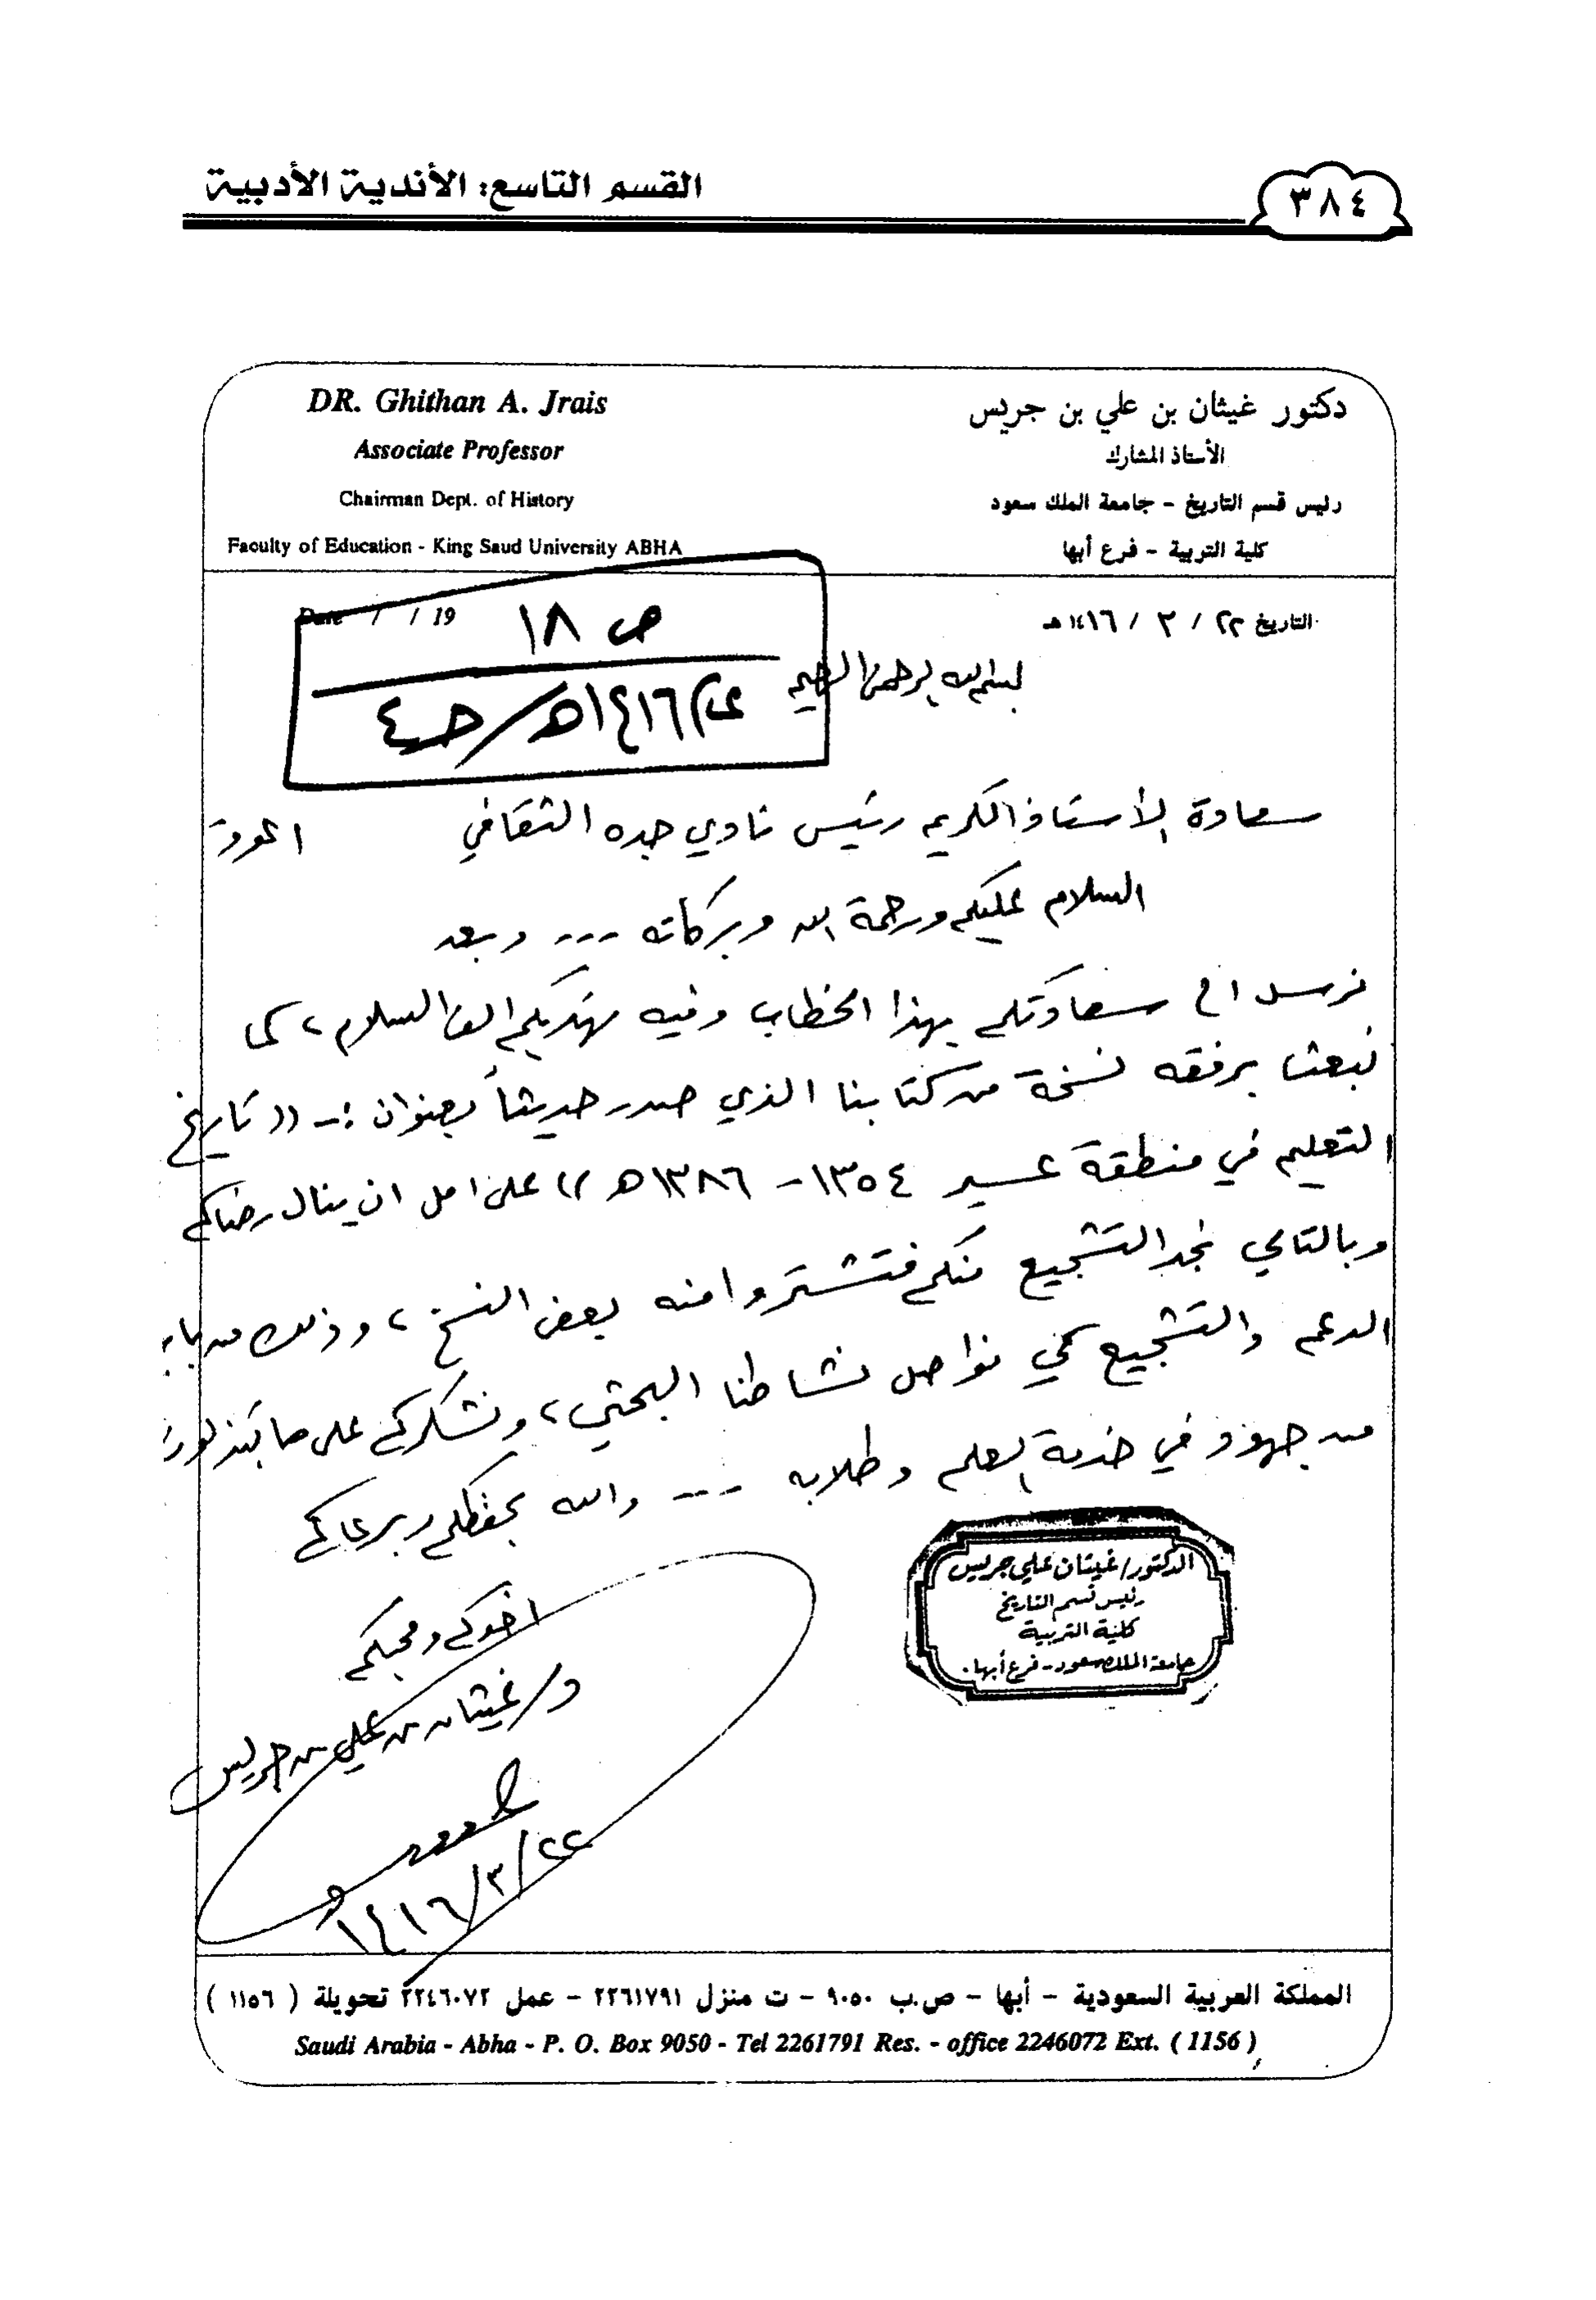 القسم التاسع: الأندية الأدبية
٣٨٤
DR. Ghithan A. Jrais
Associate Professor
Chairman Dept. of History
Faculty of Education - King Saud University ABHA
دكتور غيثان بن علي بن جريس
الأستاذ المشارك
رئيس قسم التاريخ - جامعة الملك سعود
كلية التربية - فرع أبها
Date / / 19
التاريخ ٢٢ / ٣ / ١٤١٦ هـ
ص ١٨
١٤١٦هـ/حـ٤
بسم الله الرحمن الرحيم
سعادة الأستاذ الكريم رئيس نادي جده الثقافي
السلام عليكم ورحمة الله وبركاته --- وبعد
نرسل الى سعادتكم بهذا الخطاب وفيه نهديكم الف السلام، كما
نبعث برفقه نسخة من كتابنا الذي صدر حديثاً بعنوان :- ((تاريخ
التعليم في منطقة عسير ١٣٥٤ - ١٣٨٦هـ)) على امل ان ينال رضاكم
وبالتالي نجد التشجيع منكم فتشتروا منه بعض النسخ، وذلك من باب
الدعم والتشجيع كي نواصل نشاطنا البحثي، ونشكركم على ما تبذلون
من جهود في خدمة العلم وطلابه --- والله يحفظكم ويرعاكم
الدكتور/غيثان علي جريس
رئيس قسم التاريخ
كلية التربية
جامعة الملك سعود - فرع أبها.
اخوكم ومحبكم
د/غيثان بن علي بن جريس
١٤١٦/٣/٢٢
المملكة العربية السعودية - أبها - ص.ب ٩٠٥٠ - ت منزل ٢٢٦١٧٩١ - عمل ٢٢٤٦٠٧٢ تحويلة ( ١١٥٦ )
Saudi Arabia - Abha - P. O. Box 9050 - Tel 2261791 Res. - office 2246072 Ext. ( 1156 )